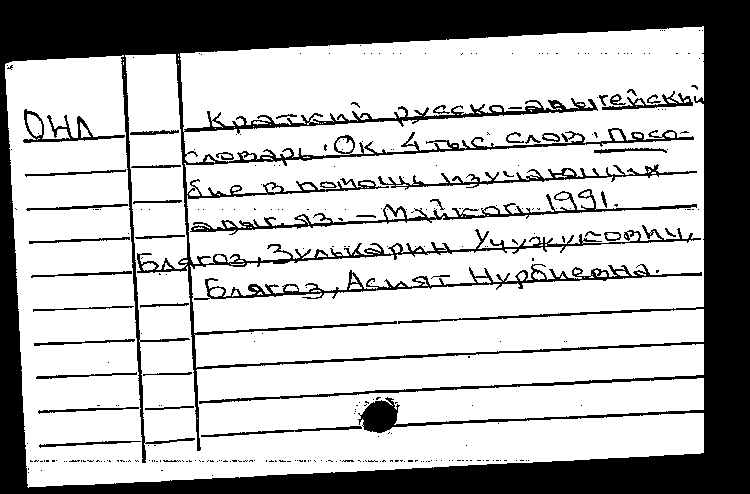 ОНЛ
Краткий русско-адыгейский
словарь: Ок. 4 тыс. слов: Посо-
бие в помощь изучающих
адыг. яз. - Майкоп, 1991.
Блягоз, Зулькарин Учужукович,
Блягоз, Асият Нурбиевна.